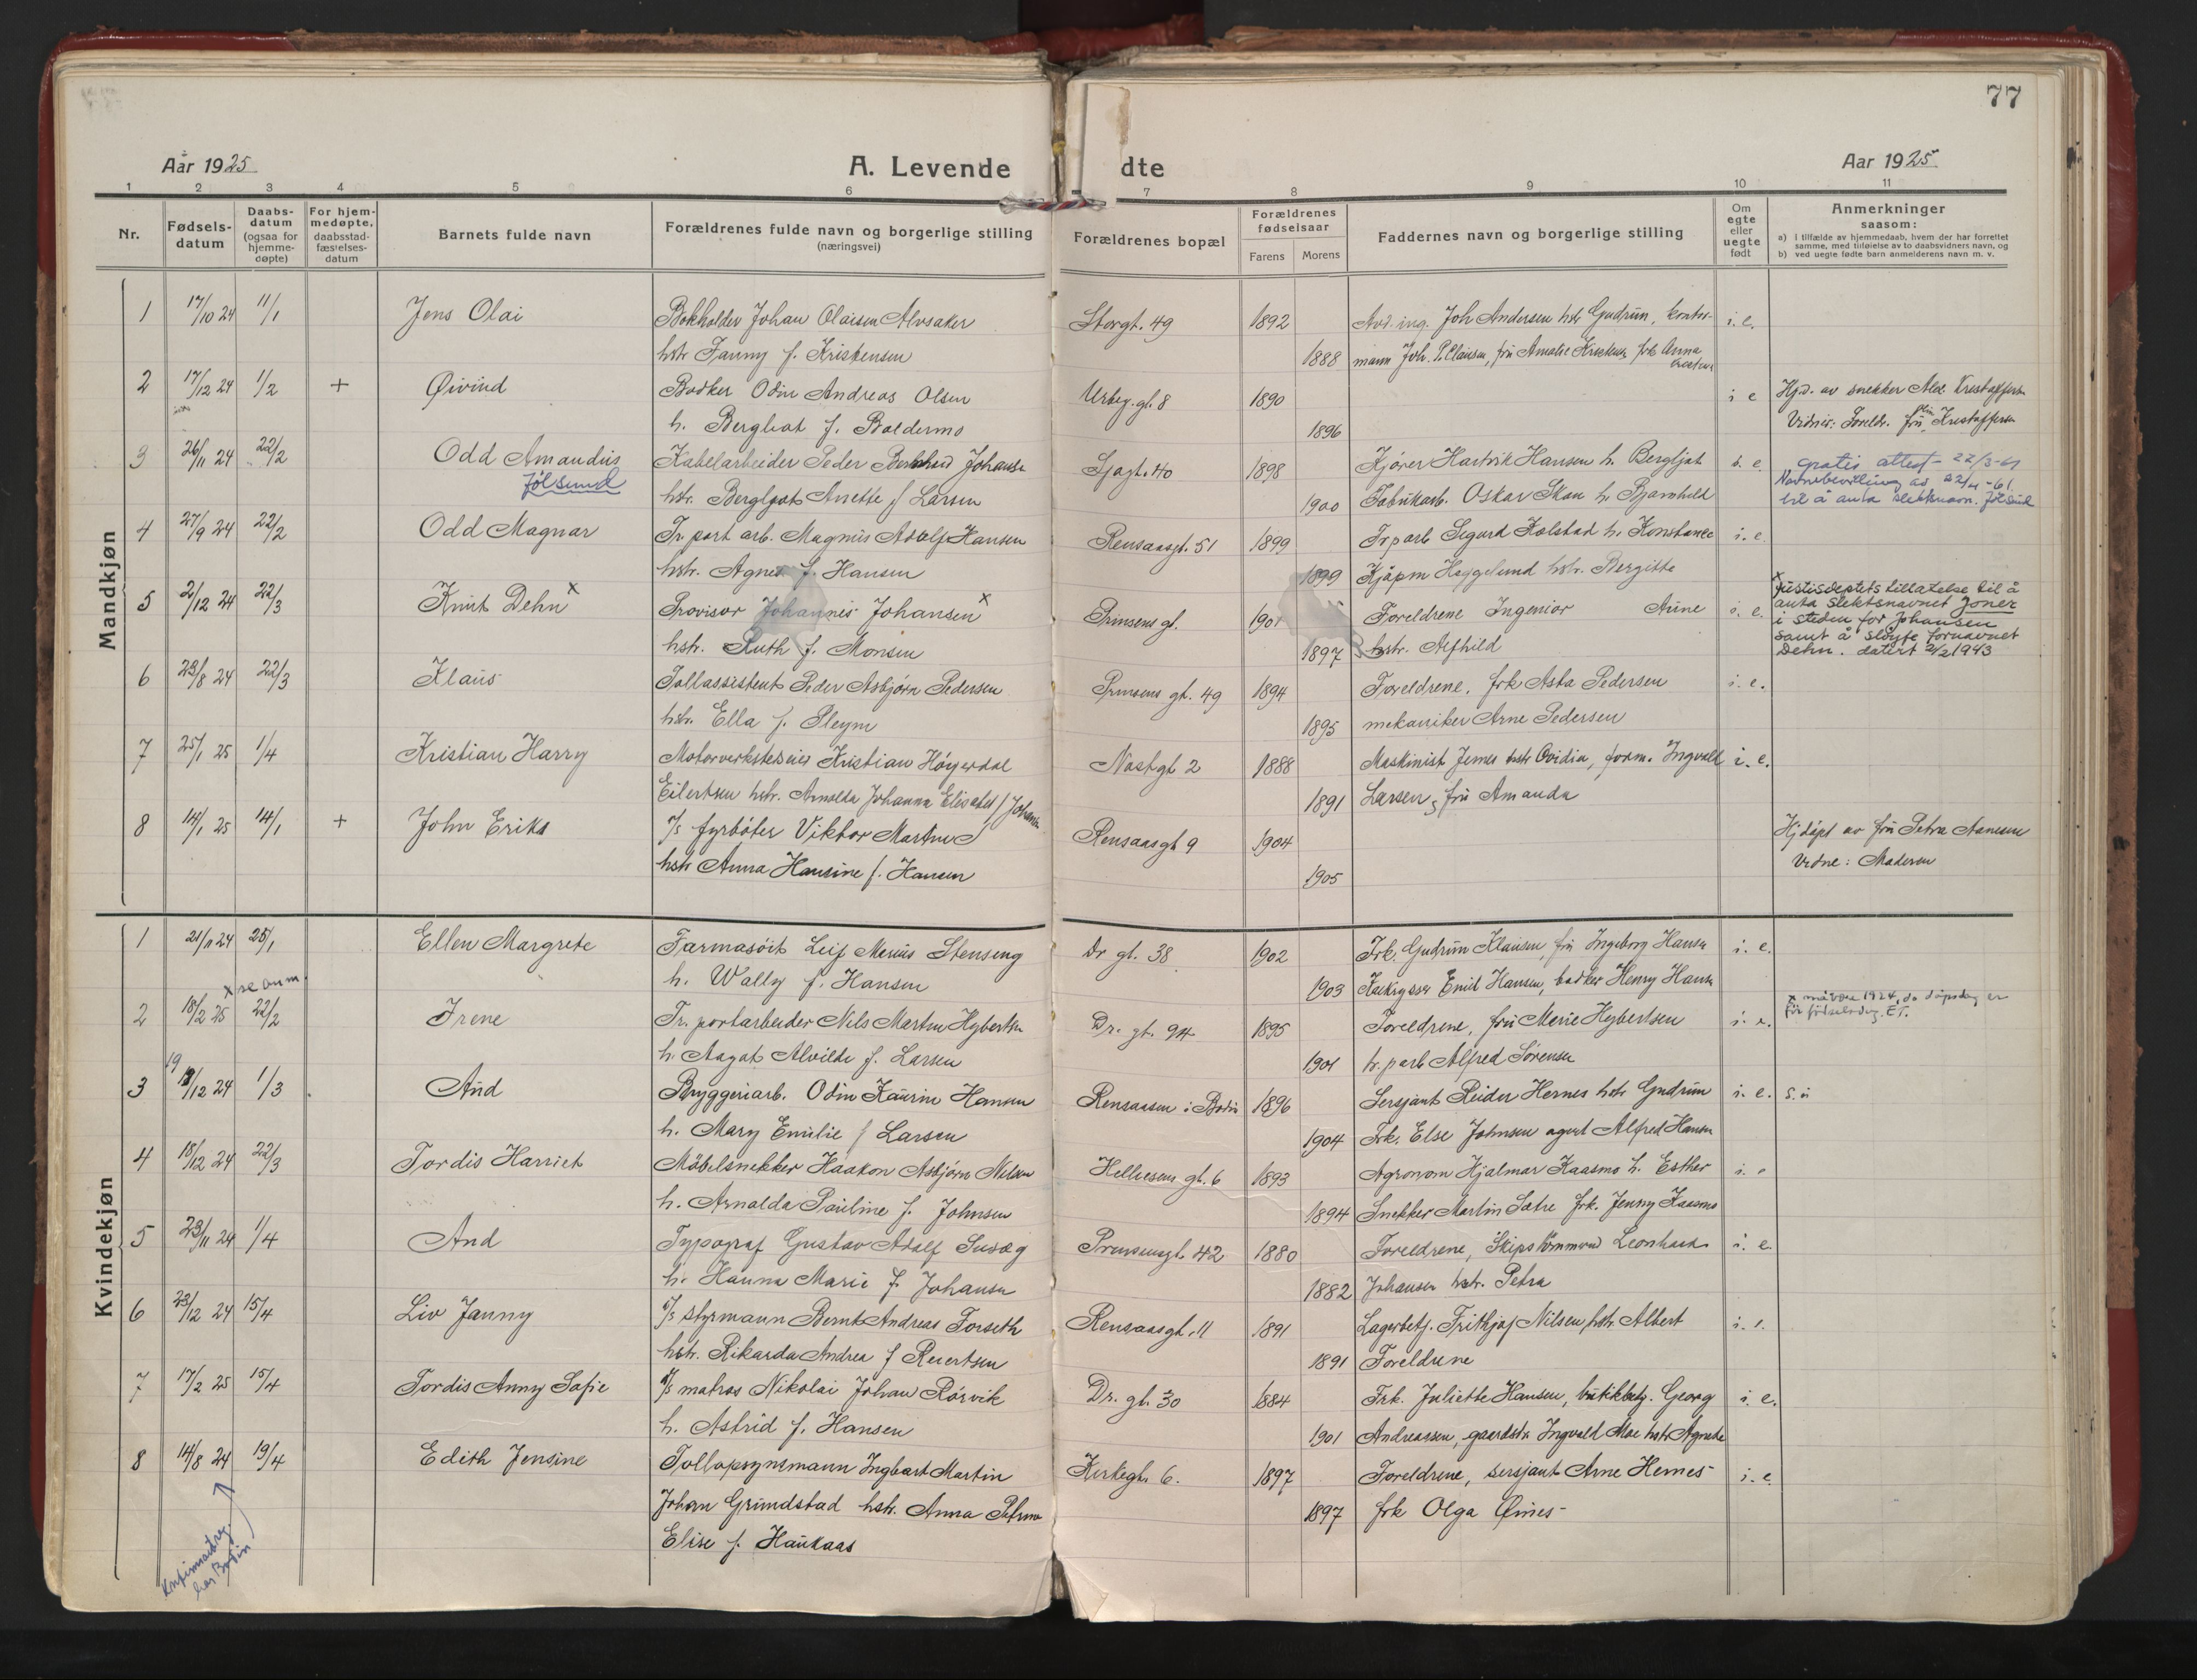 77
Aar 1925
A. Levende
dte
Aar 1925
1 2 3 4 5 6 7 8 9 10 11
Nr.
Fødsels-
datum
Daabs-
datum
(ogsaa for
hjemme-
døpte)
For hjem-
medøpte,
daabsstad-
fæstelses-
datum
Barnets fulde navn
Forældrenes fulde navn og borgerlige stilling
(næringsvei)
Forældrenes bopæl
Forældrenes
fødselsaar
Farens Morens
Faddernes navn og borgerlige stilling
Om
egte
eller
uegte
født
Anmerkninger
saasom:
a) i tilfælde av hjemmedaab, hvem der har forrettet
samme, med tilføielse av to daabsvidners navn, og
b) ved uegte fødte barn anmelderens navn m. v.
Mandkjøn
1 17/10 24 11/1 Jens Olai Bokholder Johan Olaisen Alvsaker Storgt. 49 1892 Avd. ing. Joh Andersen hstr Gudrun, kontor- i. e.
hstr Fanny f. Kristensen 1888 mann Joh. P. Clausen, fru Amalie frk Anna
2 17/12 24 1/2 + Øivind Bødker Odin Andreas Olsen gt. 8 1890 i e Hj.d. av snekker Alex Kristoffersen
h. Bergliot f. Boldermo 1896 Vidner: Foreldr. fru Kristoffersen
3 26/11 24 22/2 Odd Amandus Kabelarbeider Peder Johansen Sjøgt. 40 1898 Kjører Hartvik Hansen h. Bergljot i. e. gratis attest - 22/3-61
Jølsund hstr. Bergljot Anette f Larsen 1900 Fabrikarb. Oskar Skau h Bjarnhild Navnebevilling av 22/4-61.
til å anta slektsnavn. Jølsund
4 27/9 24 22/2 Odd Magnar Tr. port arb. Magnus Adolf Hansen Rensaasgt. 51 1899 Trp arb Sigurd Kolstad h. Konstance i. e.
hstr. Agnes f. Hansen 1899 Kjøpm Heggelund hstr. Bergitte
5 2/12 24 22/3 Knut Dehn x Provisor Johannes Johansen x Prinsens gt. 1901 Foreldrene Ingeniør Aune i. e. x Justisdeptets tillatelse til å
hstr. Ruth f. Monsen 1897 hstr. Alfhild anta slektsnavnet Joner
i steden for Johansen
samt å sløyfe fornavnet
Dehn. datert 2/2 1943
6 23/8 24 22/3 Klaus Tollassistent Peder Asbjørn Pedersen Prinsens gt. 49 1894 Foreldrene, frk Asta Pedersen i. e.
hstr. Ella f. Pleym 1895 mekaniker Arne Pedersen
7 25/1 25 1/4 Kristian Harry Motorverkstedseier Kristian Høyerdal Næstgt 2 1888 Maskinist Jemes hstr Ovidia, form. Ingvald i. e.
Eilertsen hstr. Arnolda Johanna Elisabet f Johansen 1891 Larsen, fru Amanda
8 14/1 25 14/1 + John Eriks fyrbøter Viktor Rensaasgt 9 1904 Hj døpt av fru Petra Aanesen
hstr Anna Hansine f. Hansen 1905 Vidne: Moderen
Kvindekjøn
1 21/11 24 25/1 Ellen Margrete Farmasøit Leif Menius Stenseng Dr gt. 38 1902 Frk. Gudrun Klausen, fru Ingeborg Hansen i. e.
h. Wally f. Hansen 1903 Emil Hansen, bødker Henry Hansen
2 18/2 25 x se anm. 22/2 Irene Tr. portarbeider Nils Martin Hybertsen Dr. gt. 94 1895 Foreldrene, fru Merie Hybertsen i. e. x må være 1924, da dåpsdag er
før fødselsdag. E.T.
h. Aagot Alvilde f. Larsen 1901 tr. parb Alfred Sørensen
3 19/12 24 1/3 Aud Bryggeriarb. Odin Kaurin Hansen Rensaasen i Bodin 1896 Sersjant Reidar Hernes hstr Gudrun i. e. s. u
h. Mary Emilie f Larsen 1904 Frk. Else Johnsen agent Alfred Hansen
4 18/12 24 22/3 Tordis Harriet Møbelsnekker Haakon Asbjørn Nilsen Hellesens gt. 6 1893 Agronom Hjalmar Kaasmo h. Esther i. e
h. Arnolda Pauline f. Johnsen 1894 Snekker Martin Sætre frk. Jenny Kaasmo
5 23/11 24 1/4 Aud Typograf Gustav Adolf Prinsensgt. 42 1880 Foreldrene, Skipstømmerm Leonhard i. e.
h. Hanna Marie f. Johansen 1882 Johansen hstr. Petra
6 23/12 24 15/4 Liv Janny styrmann Bernt Andreas Forseth Rensaasgt. 11 1891 Lagerbetj. Frithjof Nilsen, hstr Albert i. e.
hstr. Rikarda Andrea f Reiertsen 1891 Foreldrene
7 17/2 25 15/4 Tordis Anny Sofie matros Nikolai Johan Rørvik Dr. gt. 30 1884 Frk. Juliette Hansen, butikkbetj. Georg i. e.
h. Astrid f. Hansen 1901 Andreassen, gaardsbr Ingvald Moe hstr Agnete
8 14/8 24 19/4 Edith Jensine Tollopsynsmann Ingbart Martin Kirkegt. 6. 1897 Foreldrene, sersjant Arne Hernes i. e
Johan Grimdstad hstr. Anna Petrine 1897 frk Olga Øines
Elise f. Haukaas
Konfirmastreg.
har Bodin